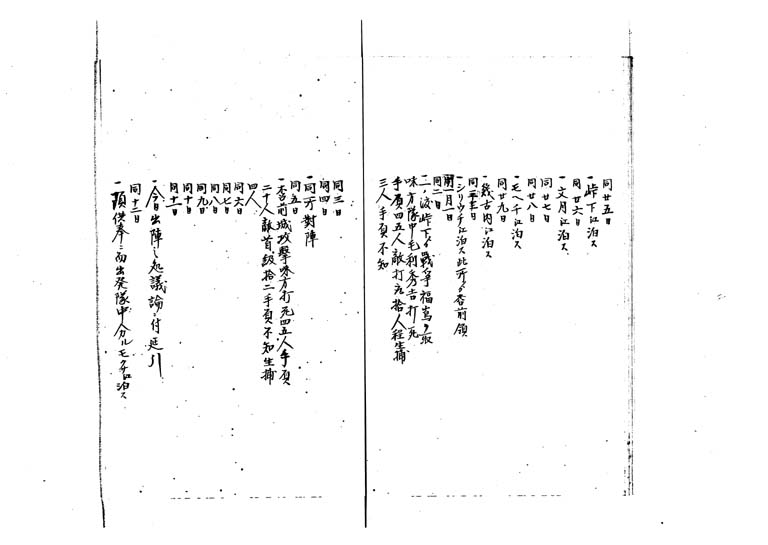 同廿五日
一峠下江泊ス
同廿六日
一文月江泊ス
同廿七日
同廿八日
一モヘチ江泊ス
同廿九日
一幾古内江泊ス
同三十日
一シリウチ江泊ス此所ゟ吞前領
閏一月一日
同二日
一一ノ渡峠下ゟ戦争福嶌ヲ取
味方隊中毛利秀吉打死
手負四五人敵打死拾人程生捕
三人手負不知
同三日
同四日
一同所對陣
同五日
一吞前城攻撃味方打死四五人手負
二十人敵首級拾二手負不知生捕
四人
同六日
同七日
同八日
同九日
同十日
同十一日
一今日出陣之処議論ニ付延引
同十二日
一須供奉ニ而出発隊中分ルモクチ江泊ス